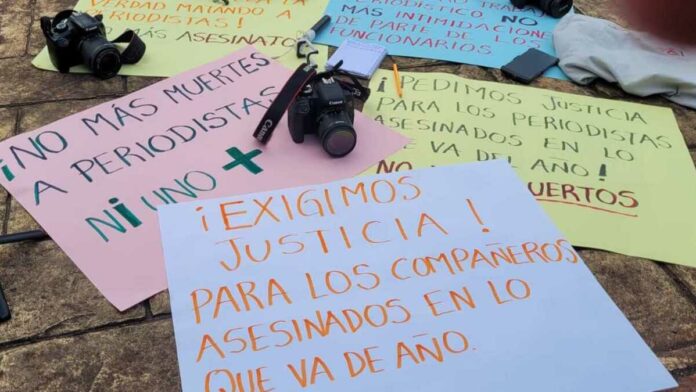 VERDAD MATANDO A
PERIODISTAS!
MÁS ASESINATO
PERIODÍSTICO
NO
MÁS INTIMIDACIONES
DE PARTE DE LOS
FUNCIONARIOS.
¡NO MÁS MUERTES
A PERIODISTAS
Ni UNO +
Canon
Canon
¡PEDIMOS JUSTICIA
PARA LOS PERIODISTAS
ASESINADOS EN LO
QUE VA DEL AÑO!
NO
MUERTOS
¡EXIGIMOS
JUSTICIA!
PARA LOS COMPAÑEROS
ASESINADOS EN LO
QUE VA DE AÑO.